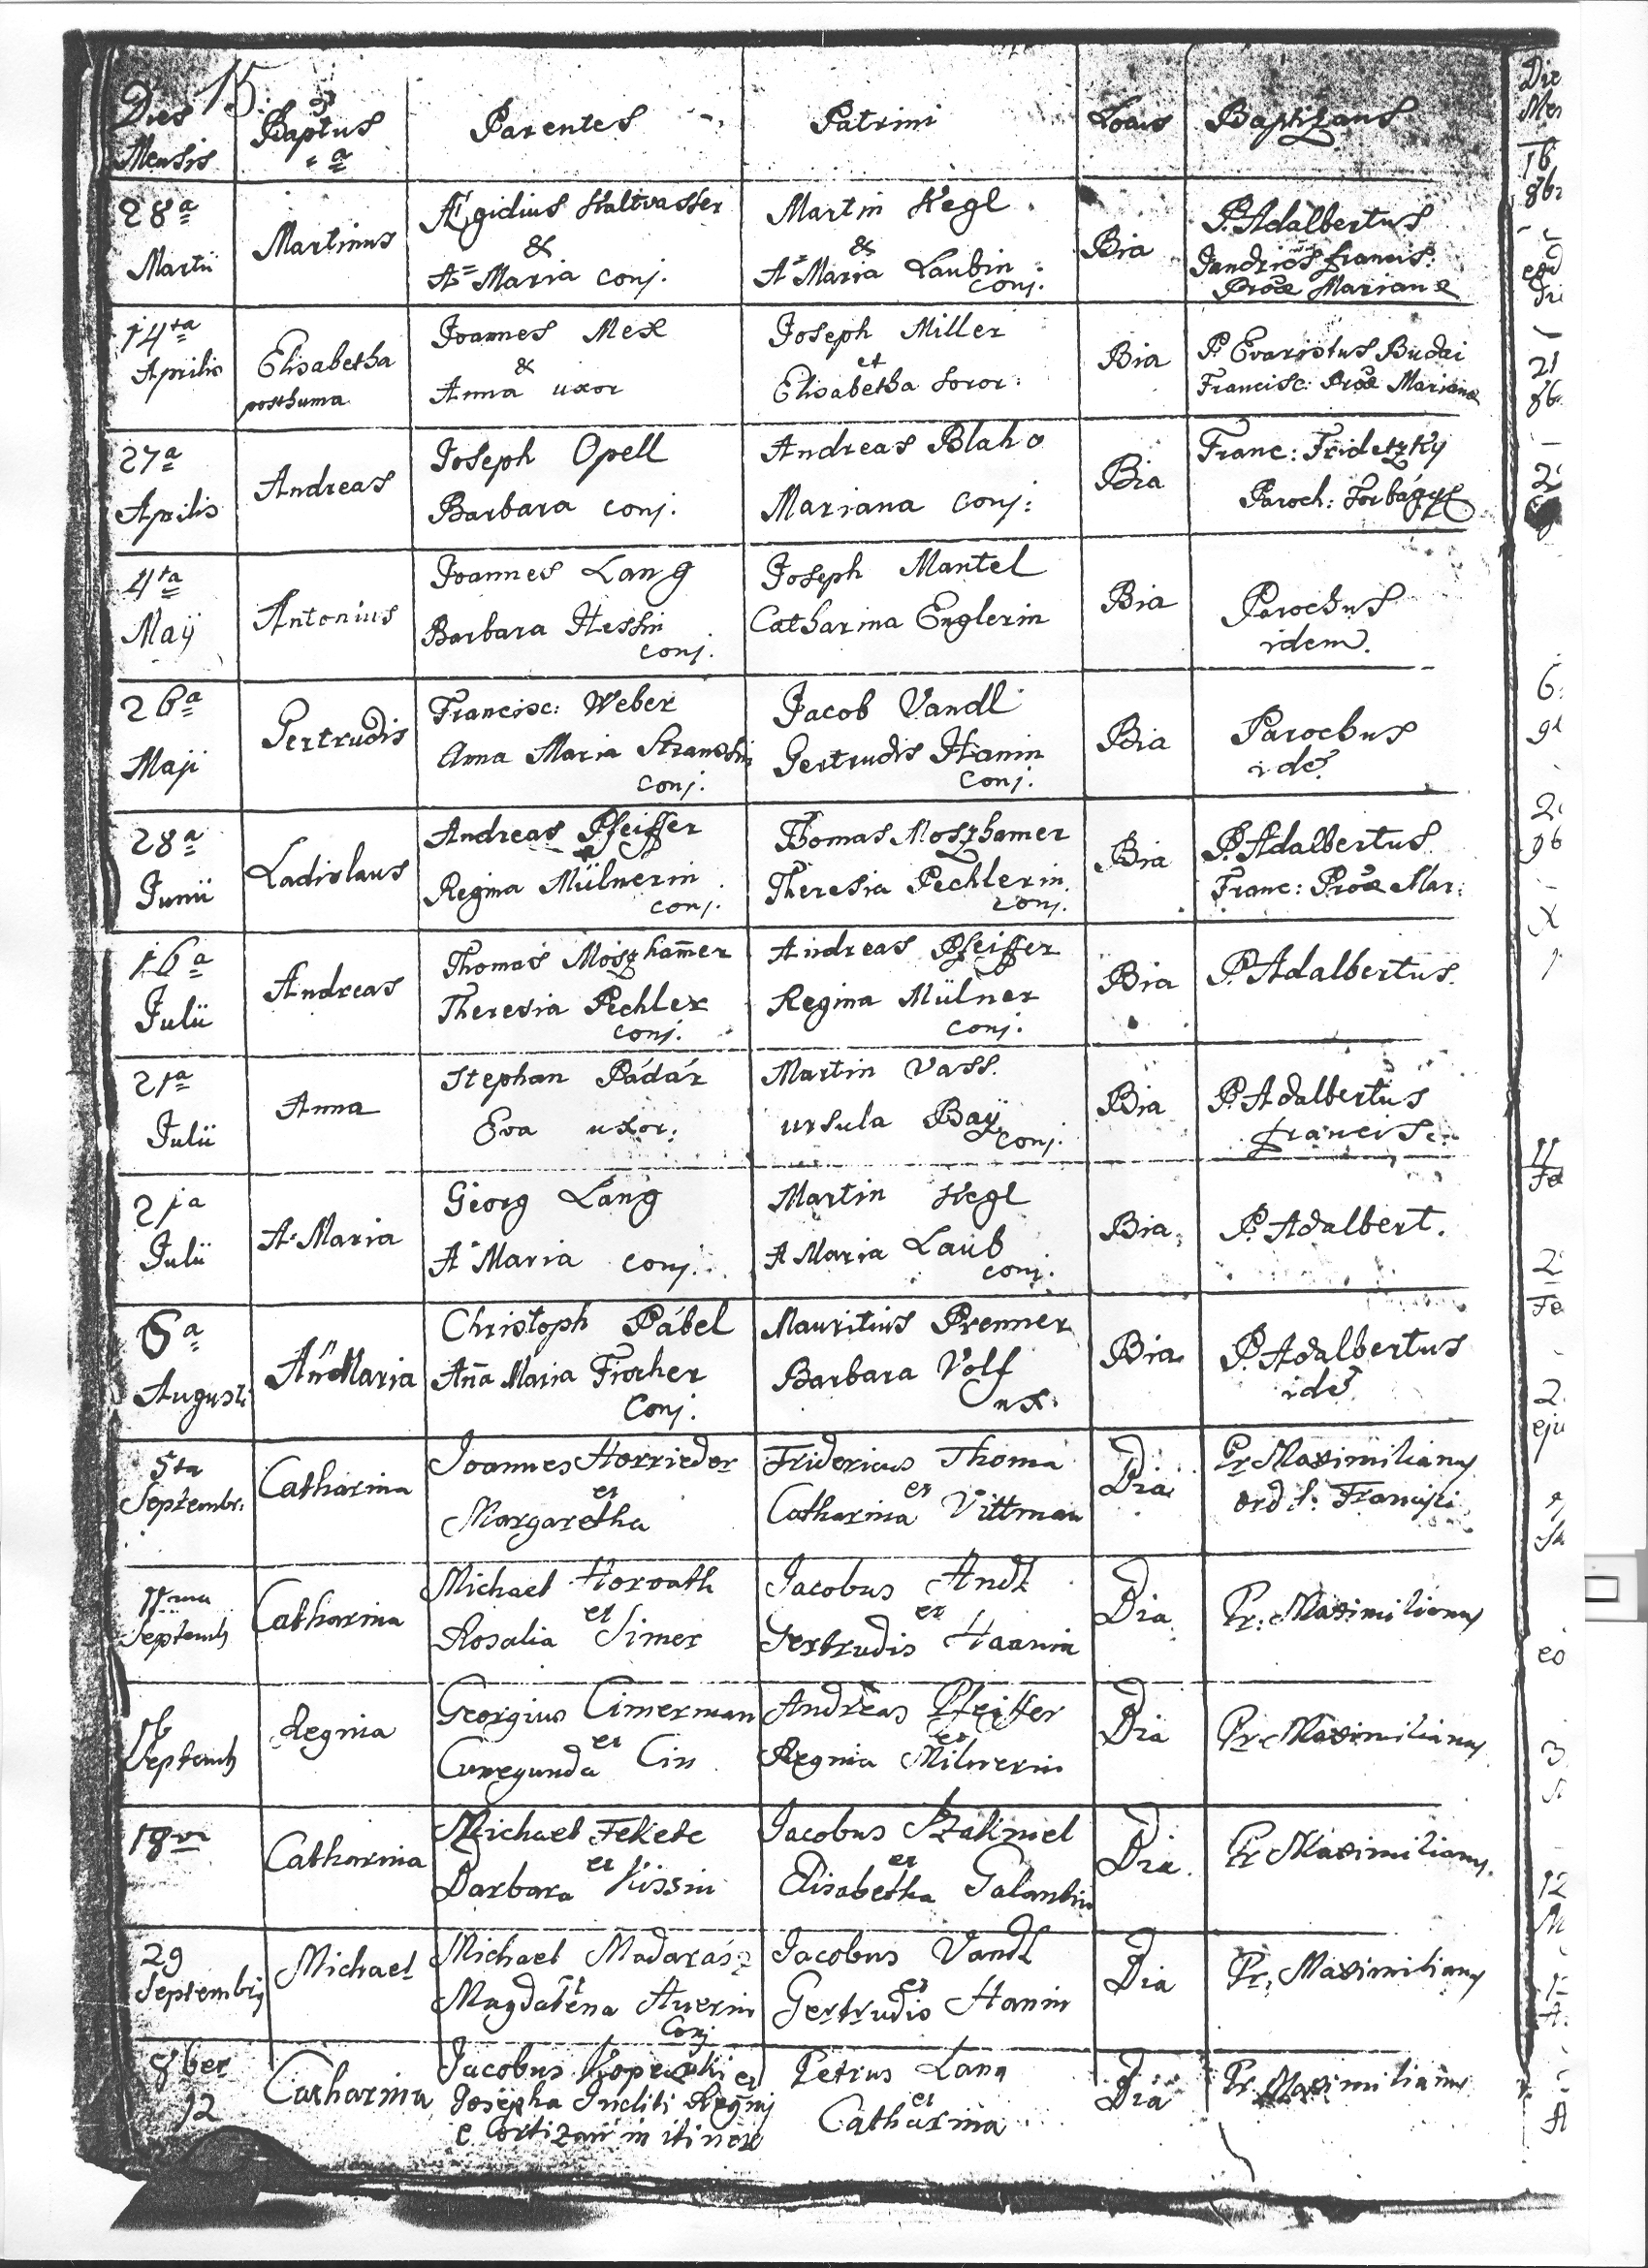 15.
Dies Mensis
Baptus a
Parentes
Patrini
Locus
Baptizans
28a Martii
Martinus
Ægidius Kaltvasser
&
A= Maria conj.
Martin Hegl.
&
A= Maria Laubin conj.
Bia
P. Adalbertus
Francis:
Proæ Marianæ
14ta Aprilis
Elisabetha
posthuma
Joannes Mex
&
Anna uxor
Joseph Miller
et
Elisabetha Soror:
Bia
P. Evaristus Budai
Francisc: Proæ Marianæ
27a Aprilis
Andreas
Joseph Opell
Barbara conj.
Andreas Blaho
Mariana conj:
Bia
Franc: Fridetzky
Paroch: Torbágy
4ta Maÿ
Antonius
Joannes Lang
Barbara Hessin
conj.
Joseph Mantel
Catharina Englerin
Bia
Parochus
idem.
26a Maji
Gertrudis
Francisc: Weber
Anna Maria
conj.
Jacob Vandl
Gertrudis Hanin
conj.
Bia
Parochus
idē
28a Junii
Ladislaus
Andreas Pfeiffer
Regina Mülnerin
conj.
Thomas Moszhamer
Theresia Pechlerin
conj.
Bia
P. Adalbertus
Franc: Proæ Mar:
16a Julii
Andreas
Thomas Moiszham̄er
Theresia Pechler
conj.
Andreas Pfeiffer
Regina Mülner
conj.
Bia
P. Adalbertus.
21a Julii
Anna
Stephan Pádár
Eva uxor:
Martin Vass.
ursula Baÿ
conj.
Bia
P. Adalbertus
Francisc:
21a Julii
A= Maria
Georg Lang
A= Maria conj.
Martin Hegl
A Maria Laub
conj.
Bia
P. Adalbert.
6a Augusti
An̄ Maria
Christoph Pábel
An̄a Maria Fischer
Conj.
Mauritius Prenner
Barbara Volf
ux.
Bia
P. Adalbertus
idē
5ta Septembr:
Catharina
Joannes Horrieder
et
Margaretha
Fridericus Thoma
et
Catharina Vittman
Bia
Pr Maximilianus
ord S: Francisci
11ma Septemb
Catharina
Michael Horvath
et
Rosalia Simer
Jacobus Andl
et
Gertrudis Haanin
Bia
Pr: Maximilianus
16 Septemb
Regina
Georgius Cimerman
et
Cunegunda Cin
Andreas Pfeiffer
et
Regina Milnerin
Bia
Pr Maximilianus
18va
Catharina
Michael Fekete
et
Barbara Kissin
Jacobus
et
Elisabetha Galambin
Bia
Pr Maximilianus.
29 Septembris
Michael
Michael Madarász
et
Magdalena Auerin
Conj
Jacobus Vandl
et
Gertrudis Hanin
Bia
Pr: Maximilianus
8ber 12
Catharina
Jacobus et
Josepha Incliti Regnj
in itinere
Petrus Lang
et
Catharina
Bia
Pr Maximilianus